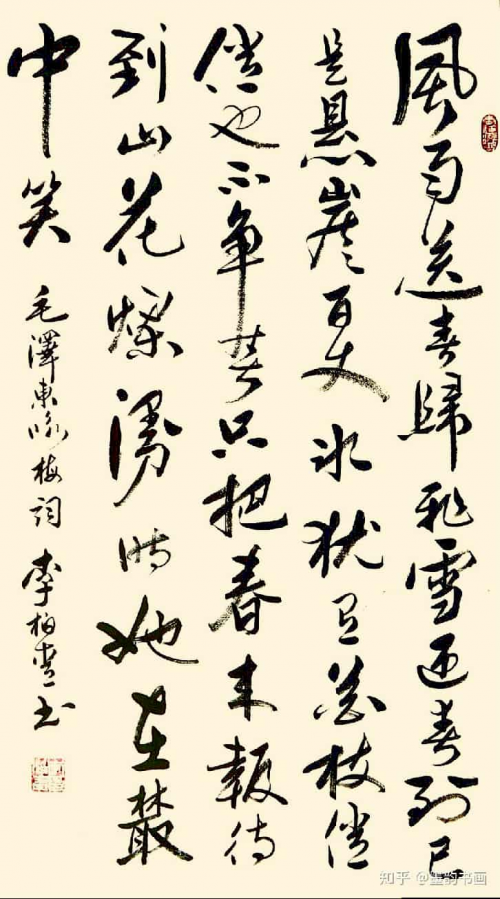 風雨送春歸飛雪迎春到已
是懸崖百丈冰猶有花枝俏
俏也不争春只把春来報待
到山花爛漫時她在叢
中笑
毛澤東咏梅詞 李柏书
知乎 @墨韵书画